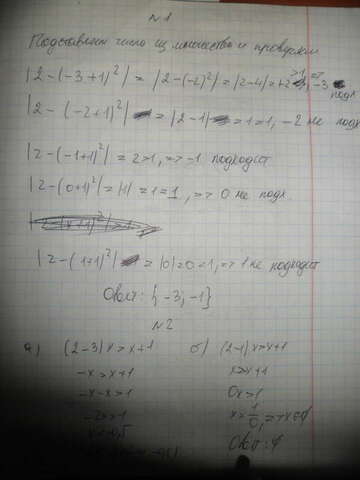 N 1
Подставляем число из множества и проверяем
|2-(-3+1)²| = |2-(-2)²| = |2-4| = +2 >1, => -3 подх
|2-(-2+1)²| = |2-1| = 1=1, -2 не подх
|2-(-1+1)²| = 2>1, => -1 подходит
|2-(0+1)²| = |1| = 1=1, => 0 не подх.
|2-(1+1)²| = |0|=0 1, => 1 не подходит
Ответ: {-3; -1}
N 2
а) (2-3)x > x+1 б) (2-1)x > x+1
-x > x+1 x > x+1
-x-x > 1 0x > 1
-2x > 1 x > 1/0, => x∈∅
x < -0,5 Ответ: ∅